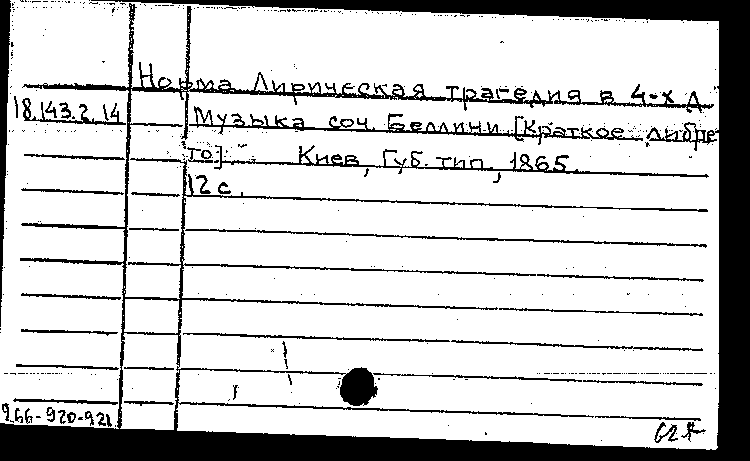 Норма Лирическая трагедия в 4-х д.
18.143.2.14 Музыка соч. Беллини. [Краткое либрет
то]. Киев, Губ. тип., 1865.
12 с.
266-920-921